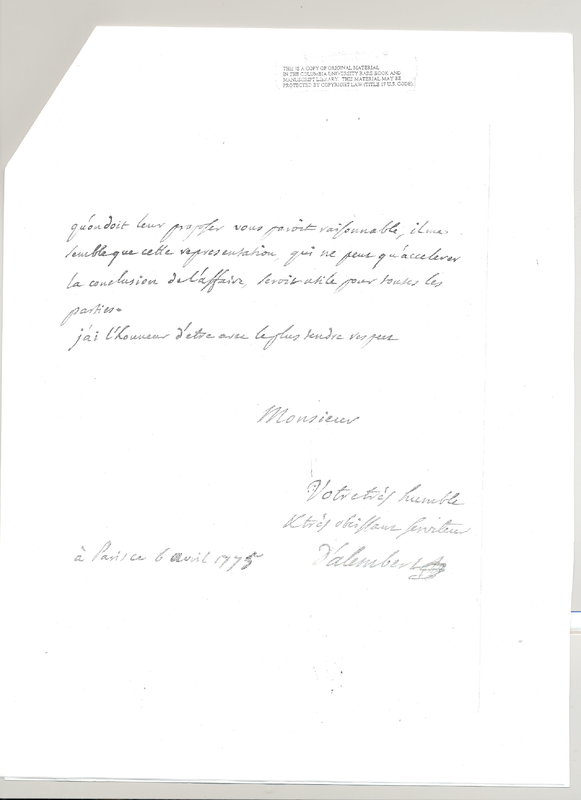 THIS IS A COPY OF ORIGINAL MATERIAL
IN THE COLUMBIA UNIVERSITY RARE BOOK AND
MANUSCRIPT LIBRARY. THIS MATERIAL MAY BE
PROTECTED BY COPYRIGHT LAW (TITLE 17 U.S. CODE)
qu'on doit leur proposer vous paroit raisonnable, il me
semble que cette representation, qui ne peut qu'accelerer
la conclusion de l'affaire, seroit utile pour toutes les
parties.
j'ai l'honneur d'etre avec le plus tendre respect
Monsieur
Votre très humble
& très obeissant serviteur
à Paris ce 6 avril 1775
D'alembert